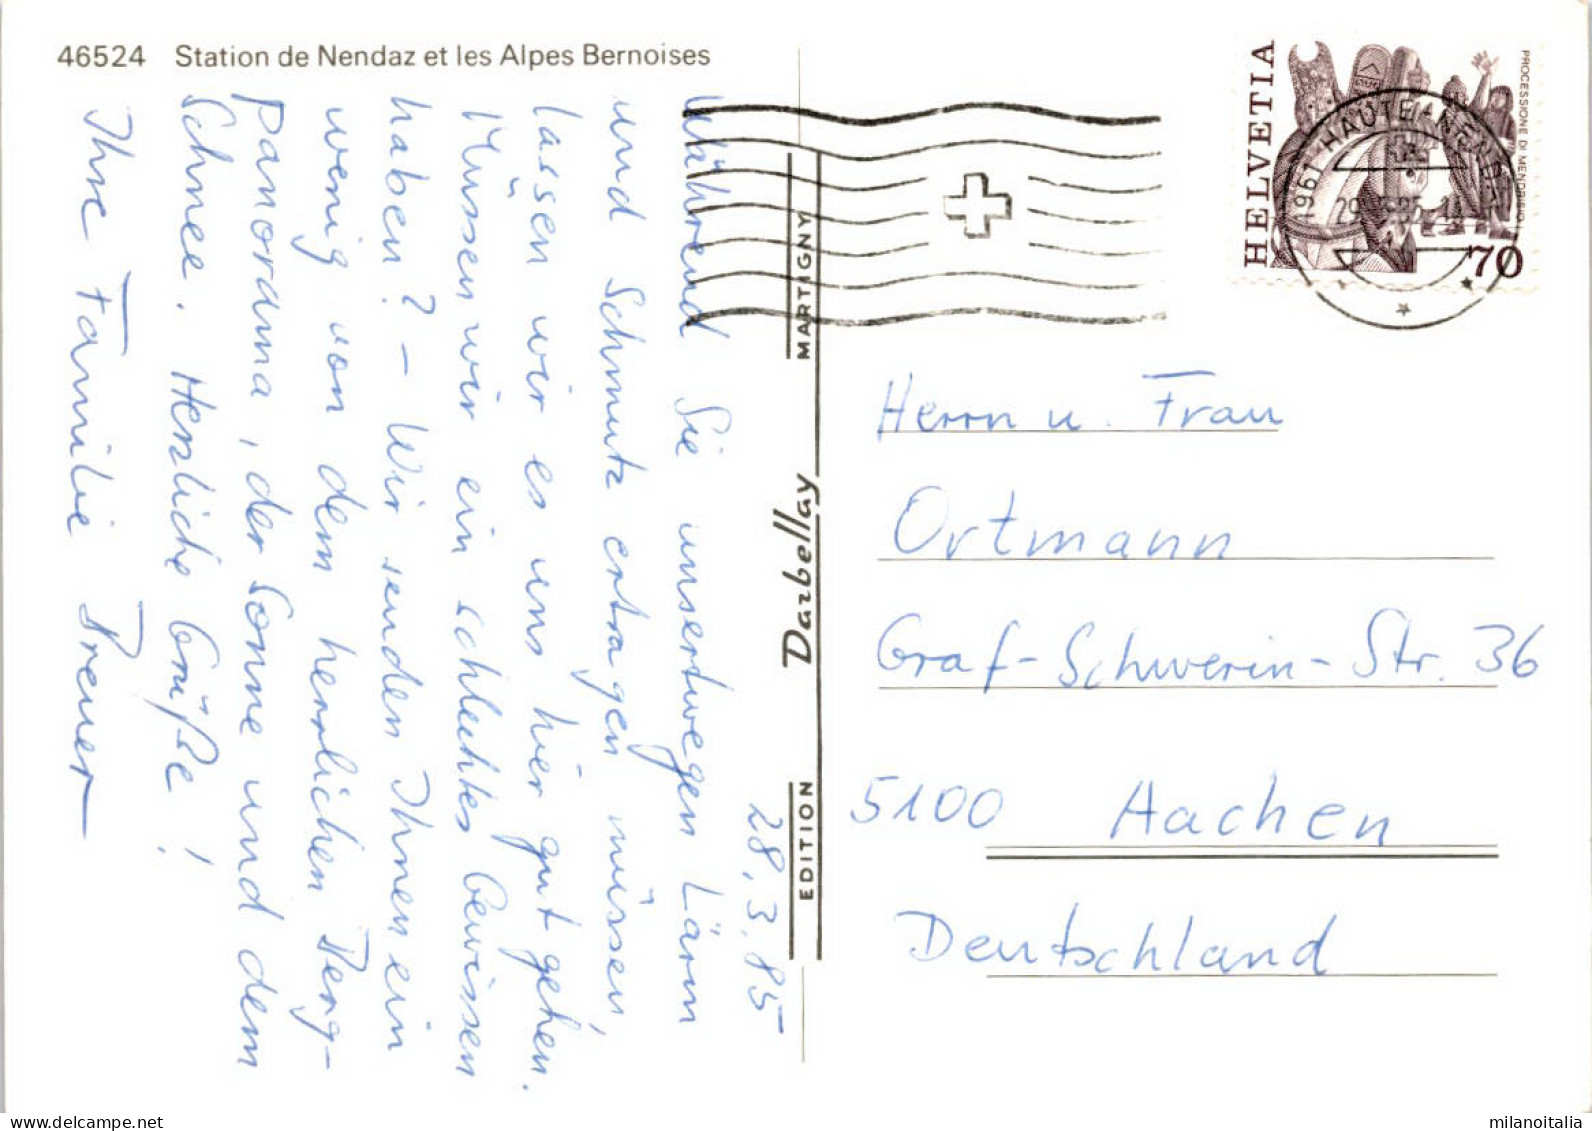 46524 Station de Nendaz et les Alpes Bernoises
28.3.85
Während Sie unsertwegen Lärm
und Schmutz ertragen müssen,
lassen wir es uns hier gut gehen.
Müssen wir ein schlechtes Gewissen
haben? – Wir senden Ihnen ein
wenig von dem herrlichen Berg-
panorama, der Sonne und dem
Schnee. Herzliche Grüße!
Ihre Familie Breuer
EDITION Darbellay MARTIGNY
HELVETIA
PROCESSIONE DI MENDRISIO
70
1961 HAUTE-NENDAZ
Herrn u. Frau
Ortmann
Graf-Schwerin-Str. 36
5100 Aachen
Deutschland
milanoitalia